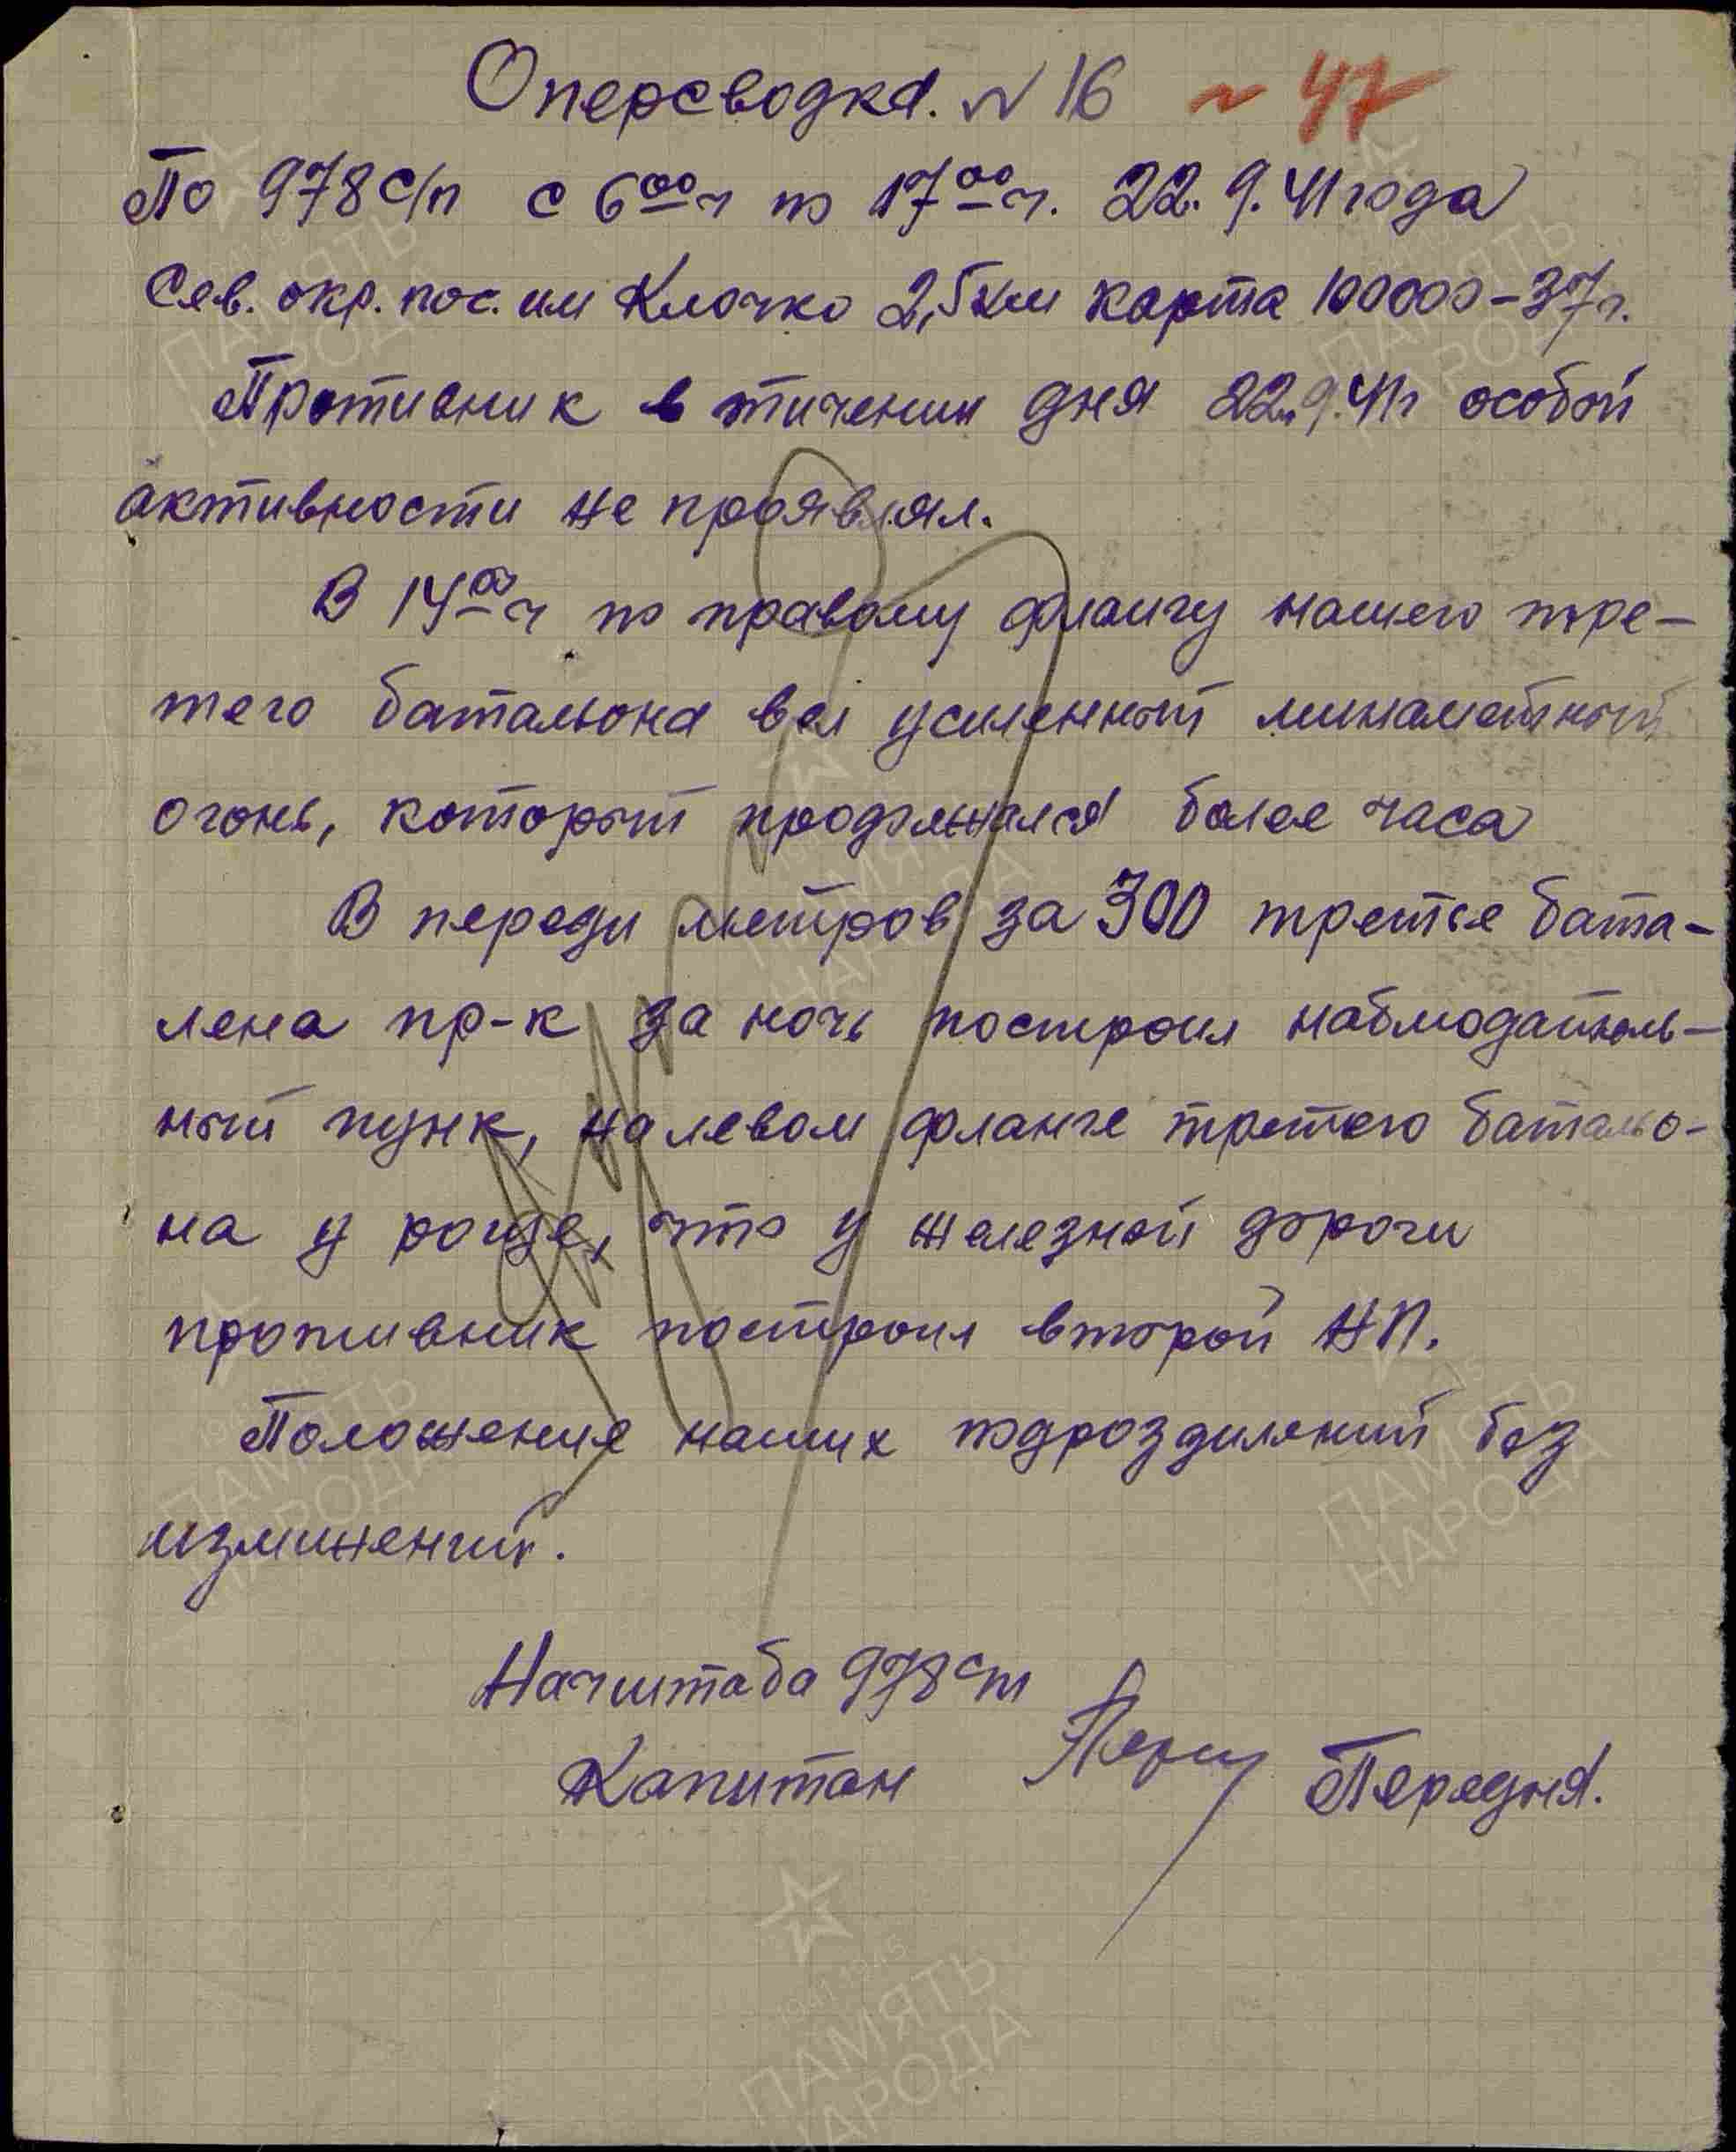 Оперсводка. № 16 ~ 47
По 978 с/п с 6⁰⁰ч по 17⁰⁰ч. 22. 9. 41 года
Сев. окр. пос. им Клочко 2,5 км карта 100000-37г.
Противник в тичении дня 22.9.41г особой
активности не проявлял.
В 14⁰⁰ч по правому флангу нашего тре-
тего баталиона вел усиленный минаметный
огонь, который продолжался более часа
В переди метров за 300 третье бата-
лена пр-к за ночь построил наблюдатель-
ный пунк, на левом фланге третего баталио-
на у роще, что у железной дороги
противник построил второй НП.
Положение наших подрозделений без
изминений.
Начштаба 978 сп
Капитан Передня.
1941-1945
ПАМЯТЬ
НАРОДА